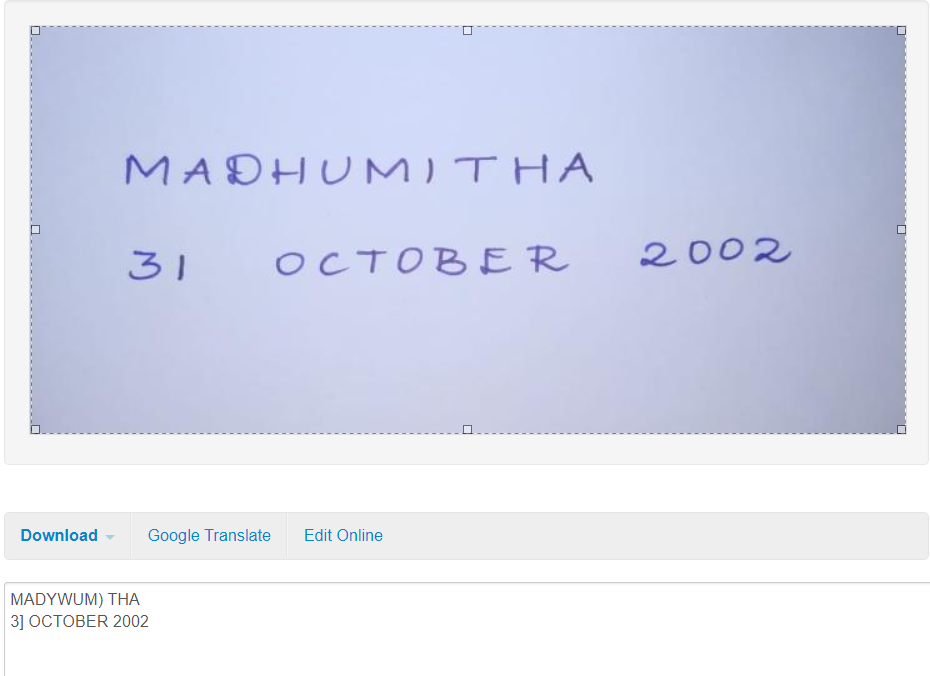 MADHUMITHA
31 OCTOBER 2002
Download Google Translate Edit Online
MADYWUM) THA
3] OCTOBER 2002